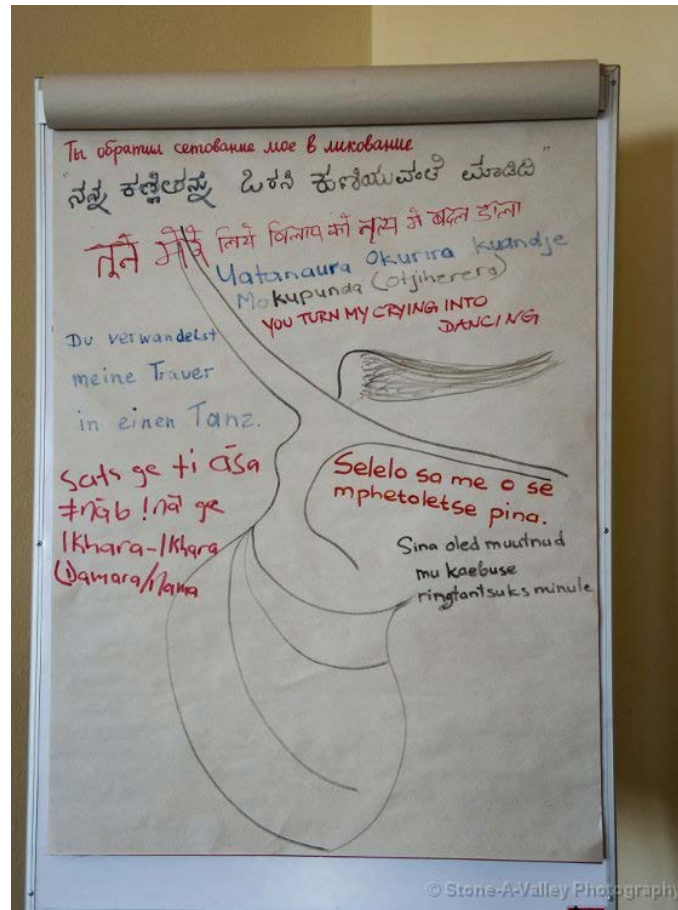 Ты обратил сетование мое в ликование
"ನನ್ನ ಕಣ್ಣೀರನ್ನು ಓರಸಿ ಕುಣಿಯುವಂತೆ ಮಾಡಿದಿ"
तूने मेरे लिये विलाप को नृत्य में बदल डाला
Yatanaura Okurira Kuandje
Mokupunda (otjiherero)
YOU TURN MY CRYING INTO
DANCING
Du verwandelst
meine Trauer
in einen Tanz.
Sats ge ti āsa
ǂnāb !nâ ge
ǀKhara-ǀKhara
(Damara/Nama
Selelo sa me o se
mphetoletse pina.
Sina oled muutnud
mu kaebuse
ringtantsuks minule
© Stone-A-Valley Photography